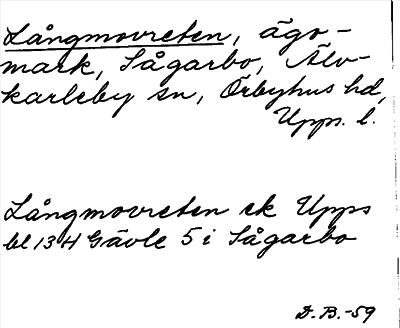 Långmovreten, ägo-
mark, Sågarbo, Älv-
karleby sn, Örbyhus hd,
Upps. l.
Långmovreten ek Upps
bl 13H Gävle 5 i Sågarbo
D. B. -59